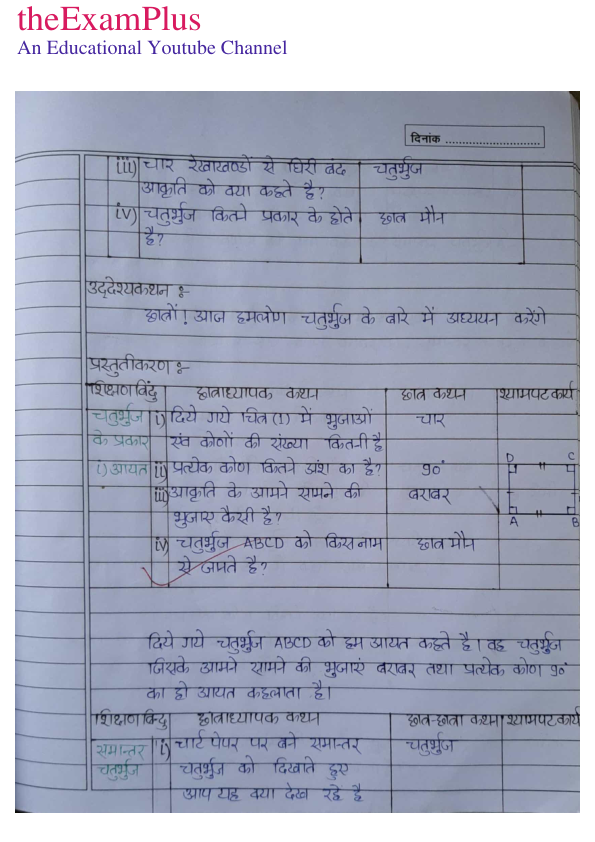 theExamPlus
An Educational Youtube Channel
दिनांक ............................
iii) चार रेखाखण्डों से घिरी बंद चतुर्भुज
आकृति को क्या कहते है?
iv) चतुर्भुज कितने प्रकार के होते छात्र मौन
है?
उद्देश्यकथन :-
छात्रों! आज हमलोग चतुर्भुज के बारे में अध्ययन करेंगे
प्रस्तुतीकरण :-
शिक्षण बिंदु छात्राध्यापक कथन छात्र कथन श्यामपट कार्य
चतुर्भुज i) दिये गये चित्र (1) में भुजाओं चार
के प्रकार एंव कोणों की संख्या कितनी है
i) आयत ii) प्रत्येक कोण कितने अंश का है? 90°
iii) आकृति के आमने सामने की बराबर
भुजाए कैसी है?
D C
A B
iv) चतुर्भुज ABCD को किस नाम छात्र मौन
से जानते है?
दिये गये चतुर्भुज ABCD को हम आयत कहते है। वह चतुर्भुज
जिसके आमने सामने की भुजाएं बराबर तथा प्रत्येक कोण 90°
का हो आयत कहलाता है।
शिक्षण बिंदु छात्राध्यापक कथन छात्र-छात्रा कथन श्यामपट कार्य
समान्तर i) चार्ट पेपर पर बने समान्तर चतुर्भुज
चतुर्भुज चतुर्भुज को दिखाते हुए
आप यह क्या देख रहे है